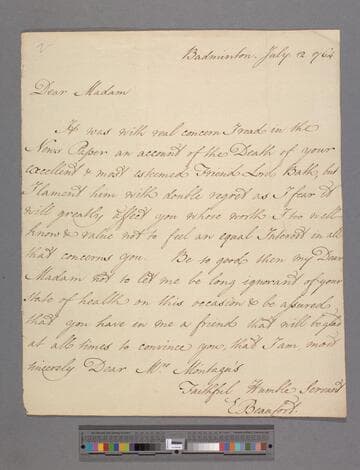 Badminton. July 12 1764
Dear Madam
It was with real concern I read in the
News Paper an account of the Death of your
excellent & most esteemed Friend Lord Bath, but
I lament him with double regret as I fear it
will greatly affect you whose worth I too well
know & value not to feel an equal Interest in all
that concerns you. Be so good then my Dear
Madam not to let me be long ignorant of your
state of health on this occasion & be assured,
that you have in me a friend that will be glad
at all times to convince you, that I am most
sincerely Dear Mrs Montagu's
Faithful Humble Servant
E Beaufort.